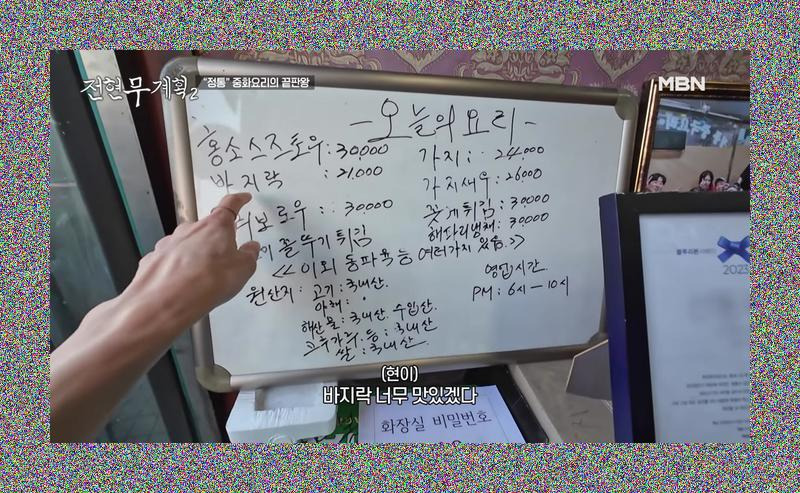 전현무계획2
"정통" 중화요리의 끝판왕
MBN
-오늘의 요리-
홍소스즈토우 : 30,000
바지락 : 21,000
보로우 : 30,000
꼴뚜기 튀김
<< 이외 동파육 등 여러가지 있음. >>
가지 : 24,000
가지새우 : 26000
꽃게튀김 : 30000
해파리냉채 : 30000
원산지 : 고기 : 국내산.
야채 :
해산물 : 국내산. 수입산.
고추가루. 등 : 국내산
쌀 : 국내산.
영업시간.
PM : 6시 — 10시
블루리본
2023
(현이)
바지락 너무 맛있겠다
화장실 비밀번호